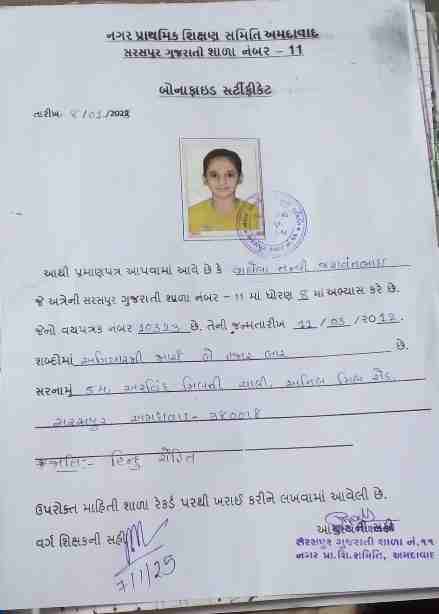 નગર પ્રાથમિક શિક્ષણ સમિતિ અમદાવાદ
સરસપુર ગુજરાતી શાળા નંબર - 11
બોનાફાઇડ સર્ટીફીકેટ
તારીખઃ 8/01/202
આથી પ્રમાણપત્ર આપવામાં આવે છે કે વાઘેલા તન્વી જશવંતભાઇ
જે અત્રેની સરસપુર ગુજરાતી શાળા નંબર - 11 માં ધોરણ 8 માં અભ્યાસ કરે છે.
જેનો વયપત્રક નંબર છે. તેની જન્મતારીખ 11 / 03 / 2012.
શબ્દોમાં અગિયારમી માર્ચ બે હજાર બાર છે.
સરનામું અરવિંદ મિલની ચાલી, અનિલ મિલ રોડ,
સરસપુર, અમદાવાદ - 380018
જાતિ:- હિન્દુ રોહિત
ઉપરોક્ત માહિતી શાળા રેકર્ડ પરથી ખરાઈ કરીને લખવામાં આવેલી છે.
વર્ગ શિક્ષકની સહી
7/1/25
આચાર્યની સહી
સરસપુર ગુજરાતી શાળા નં.૧૧
નગર પ્રા.શિ.સમિતિ, અમદાવાદ